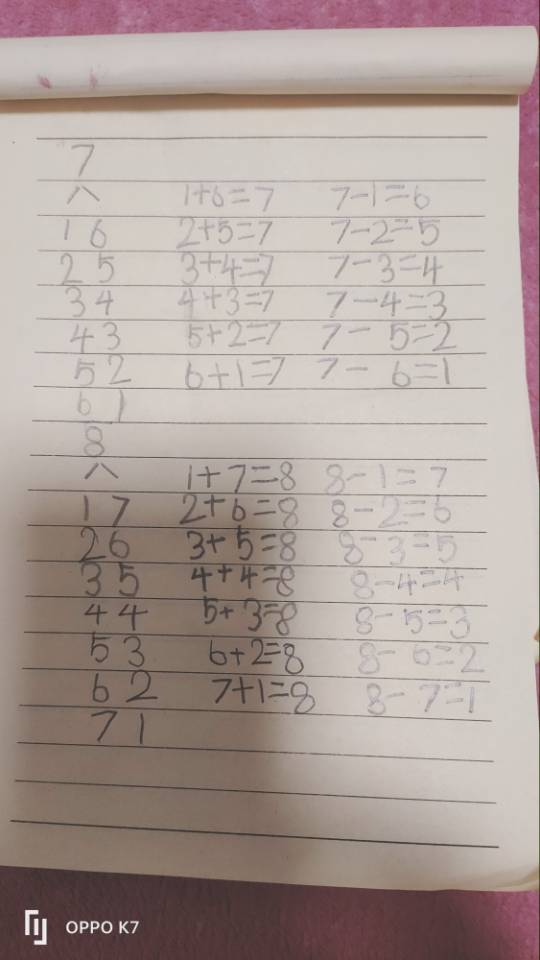 7
八 1+6=7 7-1=6
1 6 2+5=7 7-2=5
2 5 3+4=7 7-3=4
3 4 4+3=7 7-4=3
4 3 5+2=7 7- 5=2
5 2 6+1=7 7- 6=1
6 1
8
八 1+7=8 8-1=7
1 7 2+6=8 8-2=6
2 6 3+5=8 8-3=5
3 5 4+4=8 8-4=4
4 4 5+3=8 8-5=3
5 3 6+2=8 8-6=2
6 2 7+1=8 8-7=1
7 1
OPPO K7